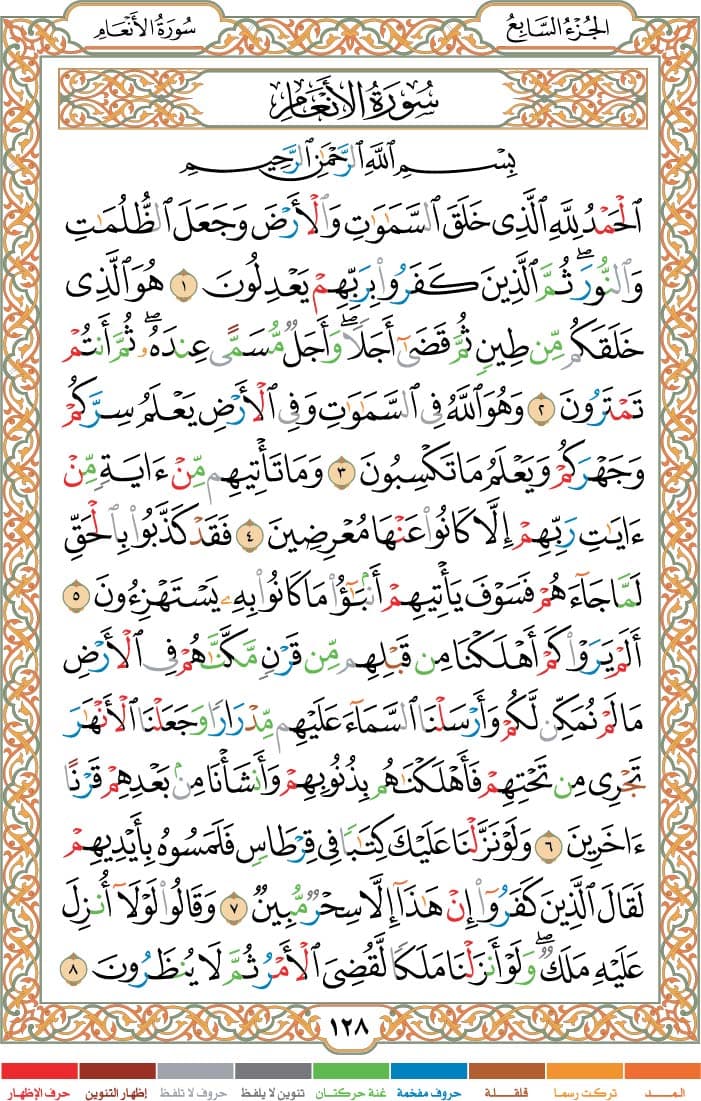 الجُزْءُ السَّابِعُ
سُورَةُ الأَنْعَامِ
سُورَةُ الأَنْعَامِ
بِسْمِ ٱللَّهِ ٱلرَّحْمَٰنِ ٱلرَّحِيمِ
ٱلْحَمْدُ لِلَّهِ ٱلَّذِى خَلَقَ ٱلسَّمَٰوَٰتِ وَٱلْأَرْضَ وَجَعَلَ ٱلظُّلُمَٰتِ
وَٱلنُّورَ ۖ ثُمَّ ٱلَّذِينَ كَفَرُوا۟ بِرَبِّهِمْ يَعْدِلُونَ ١ هُوَ ٱلَّذِى
خَلَقَكُم مِّن طِينٍ ثُمَّ قَضَىٰٓ أَجَلًا ۖ وَأَجَلٌ مُّسَمًّى عِندَهُۥ ۖ ثُمَّ أَنتُمْ
تَمْتَرُونَ ٢ وَهُوَ ٱللَّهُ فِى ٱلسَّمَٰوَٰتِ وَفِى ٱلْأَرْضِ يَعْلَمُ سِرَّكُمْ
وَجَهْرَكُمْ وَيَعْلَمُ مَا تَكْسِبُونَ ٣ وَمَا تَأْتِيهِم مِّنْ ءَايَةٍ مِّنْ
ءَايَٰتِ رَبِّهِمْ إِلَّا كَانُوا۟ عَنْهَا مُعْرِضِينَ ٤ فَقَدْ كَذَّبُوا۟ بِٱلْحَقِّ
لَمَّا جَآءَهُمْ فَسَوْفَ يَأْتِيهِمْ أَنۢبَٰٓؤُا۟ مَا كَانُوا۟ بِهِۦ يَسْتَهْزِءُونَ ٥
أَلَمْ يَرَوْا۟ كَمْ أَهْلَكْنَا مِن قَبْلِهِم مِّن قَرْنٍ مَّكَّنَّٰهُمْ فِى ٱلْأَرْضِ
مَا لَمْ نُمَكِّن لَّكُمْ وَأَرْسَلْنَا ٱلسَّمَآءَ عَلَيْهِم مِّدْرَارًا وَجَعَلْنَا ٱلْأَنْهَٰرَ
تَجْرِى مِن تَحْتِهِمْ فَأَهْلَكْنَٰهُم بِذُنُوبِهِمْ وَأَنشَأْنَا مِنۢ بَعْدِهِمْ قَرْنًا
ءَاخَرِينَ ٦ وَلَوْ نَزَّلْنَا عَلَيْكَ كِتَٰبًا فِى قِرْطَاسٍ فَلَمَسُوهُ بِأَيْدِيهِمْ
لَقَالَ ٱلَّذِينَ كَفَرُوٓا۟ إِنْ هَٰذَآ إِلَّا سِحْرٌ مُّبِينٌ ٧ وَقَالُوا۟ لَوْلَآ أُنزِلَ
عَلَيْهِ مَلَكٌ ۖ وَلَوْ أَنزَلْنَا مَلَكًا لَّقُضِىَ ٱلْأَمْرُ ثُمَّ لَا يُنظَرُونَ ٨
١٢٨
المــد تركت رسما قلقـلة حروف مفخمة غنة حركتان تنوين لا يلفظ حروف لا تلفظ إظهار التنوين حرف الإظهار